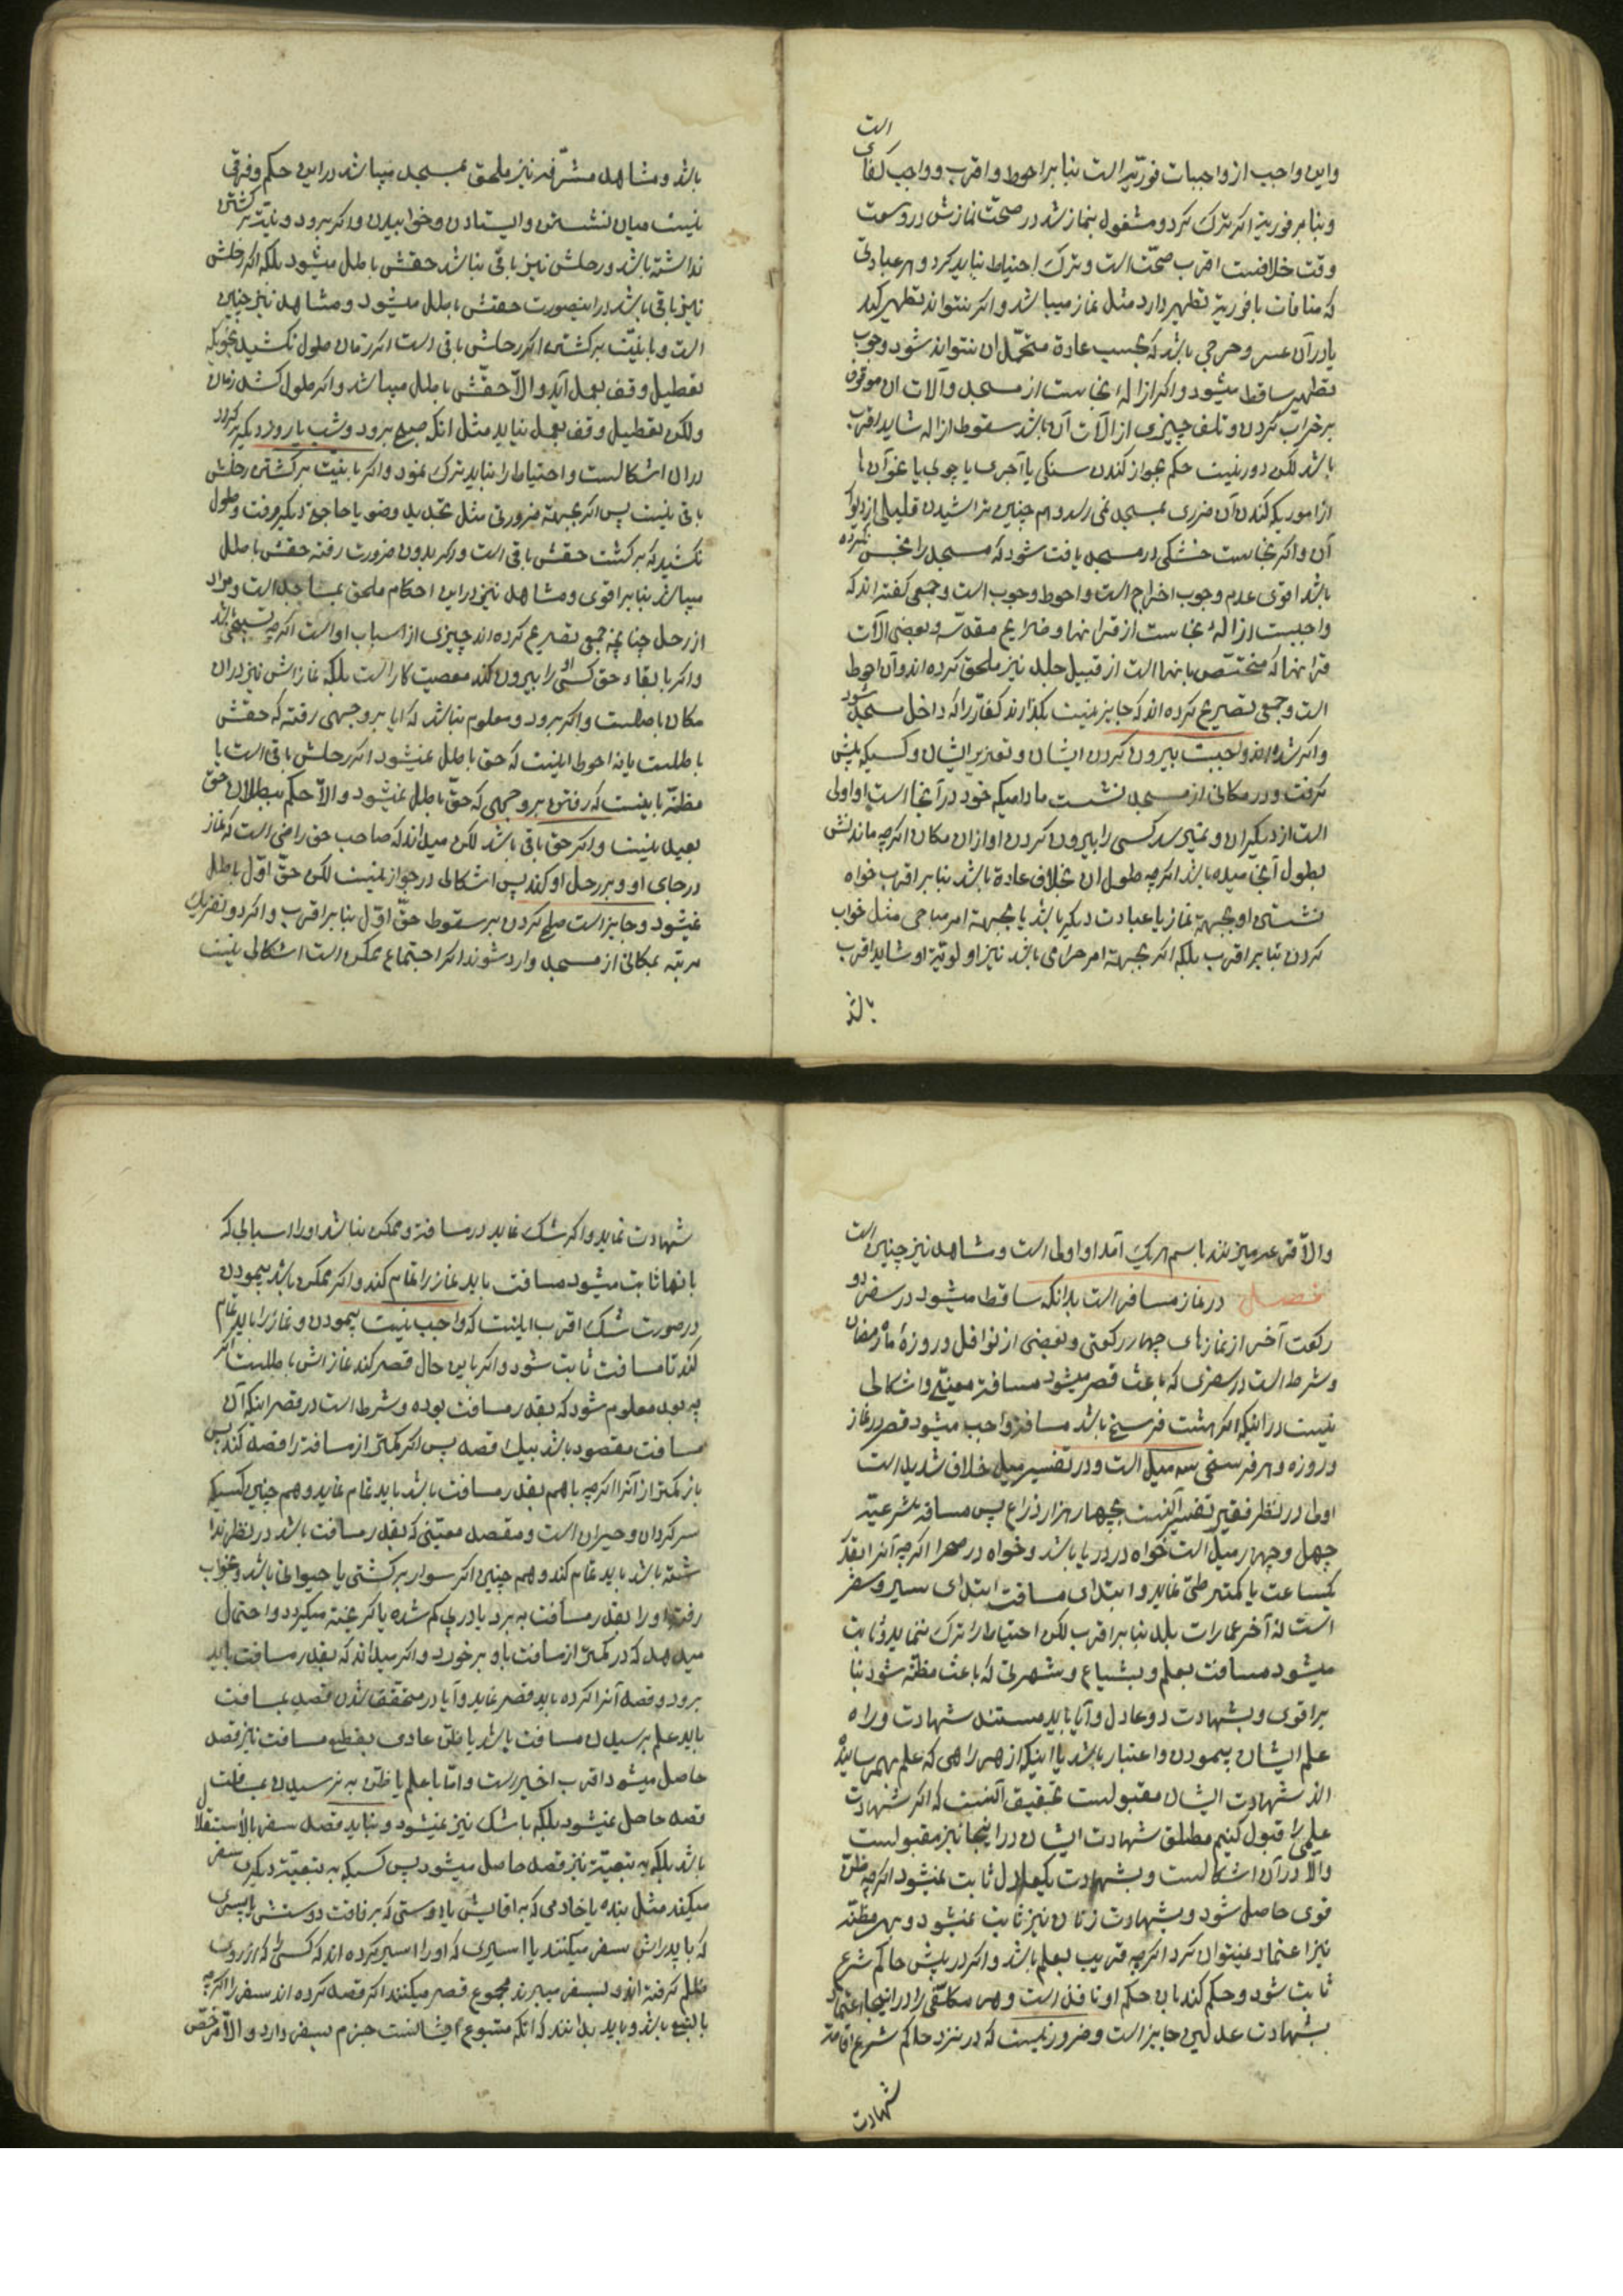 است
واین واجب از واجبات فوریّه است بنا بر احوط و اقرب و واجب کفای
و بنا بر فوریة اکر ترک کرد و مشغول بنماز شد در صحّت نمازش در وسعت
وقت خلافست اقرب صحّت است و ترک احتیاط نباید کرد و هر عبادتی
که منافات با فوریة تطهیر دارد مثل نماز میباشد و اکر نتواند تطهیر کند
یا در آن عسر و حرجی باشد که بحسب عادة متحمّل ان نتواند شود وجوب
تطهیر ساقط میشود و اکر ازالهٔ نجاست از مسجد و آلات ان موقوف
بر خراب کردن و تلف چیزی از آلات آن باشد سقوط ازاله شاید اقرب
باشد لکن دور نیست حکم بجواز کندن سنکی یا آجری یا چوبی یا نحو آن ها
از اموریکه کندن آن ضرری بمسجد نمی رسد و هم چنین تراشیدن قلیلی از دیوار
آن و اکر نجاست خشکی در مسجد یافت شود که مسجد را نجس نکرده
باشد اقوی عدم وجوب اخراج است و احوط وجوب است و جمعی کفته اند که
واجبست ازالهٔ نجاست از قرانها و ضرایح مقدّسه و بعضی آلات
قرانها که مختصّ بانها است از قبیل جلد نیز ملحق کرده اند و آن احوط
است و جمعی تصریح کرده اند که جایز نیست بکذارند کفّار را که داخل مسجد شود
و اکر شده اند واجبست بیرون کردن ایشان و تعزیر ایشان و کسیکه پیش
کرفت و در مکانی از مسجد نشست مادامیکه خود در آنجا است او اولی
است از دیکران و نمیرسد کسی را بیرون کردن او از ان مکان اکرچه ماندنش
بطول آنجامیده باشد اکرچه طول ان بخلاف عادة باشد بنا بر اقرب خواه
نشستن او بجهة نماز یا عبادت دیکر باشد یا بجهة امر مباحی مثل خواب
کردن بنا بر اقرب بلکه اکر بجهة امر حرامی باشد نیز اولویّة او شاید اقرب
باشد
باشد و مشاهد مشرّفه نیز ملحق بمسجد میباشد در این حکم و فرقی
نیست میان نشستن و ایستادن و خوابیدن و اکر برود و نیّت بر کشتن
نداشته باشد و رحلش نیز باقی نباشد حقش باطل میشود بلکه اکر رحلش
نیز باقی باشد در اینصورت حقش باطل میشود و مشاهد نیز چنین
است و با نیّت بر کشتن اکر رحلش باقی است اکر زمان طول نکشید بنحویکه
تعطیل وقف بعمل آید والاّ حقّش باطل میباشد و اکر طول کشد زمان
ولکن تعطیل وقف بعمل نیاید مثل انکه صبح برود و شب یا روز دیکر بر کردد
در ان اشکالست و احتیاط را نباید ترک نمود و اکر با نیّت بر کشتن رحلش
باقی نیست پس اکر بجهة ضرورتی مثل تجدید وضو یا حاجة دیکر رفت و طول
نکشید که بر کشت حقش باقی است و اکر بدون ضرورت رفته حقش باطل
میباشد بنا بر اقوی و مشاهد نیز در این احکام ملحق بمساجد است و مراد
از رحل چنانچه جمعی تصریح کرده اند چیزی از اسباب او است اکرچه تسبیحی باشد
و اکر با بقاء حق او کسی را بیرون کند معصیت کار است بلکه نمازش نیز در ان
مکان باطلست و اکر برود و معلوم نباشد که ایا بر وجهی رفته که حقش
باطلست یا نه احوط اینست که حق باطل نمیشود اکر رحلش باقی است یا
مظنّه باینست که رفتن بر وجهی که حقّ باطل نمیشود والاّ حکم ببطلان حق
بعید نیست و اکر حق باقی باشد لکن میداند که صاحب حق راضی است که نماز
در جای او و بر رحل او کند پس اشکالی در جواز نیست لکن حقّ اوّل باطل
نمیشود و جایز است صلح کردن بر سقوط حقّ اوّل بنا بر اقرب و اکر دو نفر یک
مرتبه بمکانی از مسجد وارد شوند اکر اجتماع ممکن است اشکالی نیست
والاّ قرعه میزنند باسم هر یک آمد او اولی است و مشاهد نیز چنین است
فصل در نماز مسافر است بدانکه ساقط میشود در سفر دو
رکعت آخر از نمازهای چهار رکعتی و بعضی از نوافل و روزهٔ ماه رمضان
و شرط است در سفری که باعث قصر میشود مسافة معیّنی و اشکالی
نیست در اینکه اکر هشت فرسخ باشد مسافة واجب میشود قصر در نماز
و روزه و هر فرسخی سه میل است و در تفسیر میل خلاف شدید است
اولی در نظر فقیر تفسیر آنست بچهار هزار ذراع پس مسافة شرعیّه
چهل و چهار میل است خواه در دریا باشد و خواه در صحرا اکرچه آنرا بقدر
یکساعت یا کمتر طیّ نماید و ابتدای مسافت ابتدای سیر و سفر
است نه آخر عمارات بلد بنا بر اقرب لکن احتیاط را ترک ننماید و ثابت
میشود مسافت بعلم و بشیاع و شهرتی که باعث مظنّه شود بنا
بر اقوی و بشهادت دو عادل و آیا باید مستند شهادت و راه
علم ایشان پیمودن و اعتبار باشد یا اینکه از هر راهی که علم بهم رسانیده
اند شهادت ایشان مقبولست تحقیق آنست که اکر شهادت
علمی را قبول کنیم مطلق شهادت ایشان در اینجا نیز مقبولست
والاّ در آن اشکالست و بشهادت یکعادل ثابت نمیشود اکرچه ظنّ
قوی حاصل شود و بشهادت زنان نیز ثابت نمیشود و بهر مظنّه
نیز اعتماد نمیتوان کرد اکرچه قریب بعلم باشد و اکر در پیش حاکم شرع
ثابت شود و حکم کند بان حکم او نافذ است و هر مکلّفی را در اینجا اعتماد
بشهادت عدلین جایز است و ضرور نیست که در نزد حاکم شرع اقامة
شهادت
شهادت نماید و اکر شک نماید در مسافة و ممکن نباشد او را اسبابی که
بانها ثابت میشود مسافت باید نماز را تمام کند و اکر ممکن باشد پیمودن
در صورت شک اقرب اینست که واجب نیست پیمودن و نماز را باید تمام
کند تا مسافت ثابت شود و اکر باین حال قصر کند نمازش باطلست اکر
چه بعد معلوم شود که بقدر مسافت بوده و شرط است در قصر اینکه آن
مسافت مقصود باشد بیک قصد پس اکر کمتر از مسافة را قصد کند پس
باز کمتر از آنرا اکرچه با هم بقدر مسافت باشد باید تمام نماید و هم چنین کسیکه
سر کردان و حیران است و مقصد معیّنی که بقدر مسافت باشد در نظر ندا
شته باشد باید تمام کند و هم چنین اکر سوار بر کشتی یا حیوانی باشد و بخواب
رفته او را بقدر مسافت به برد یا در پی کم شده یا کر یخته میکردد و احتمال
میدهد که در کمتر از مسافت باو برخورد و اکر میداند که بقدر مسافت باید
برود و قصد آنرا کرده باید قصر نماید و آیا در متحقق شدن قصد بمسافت
باید علم برسیدن مسافت باشد یا ظنّ عادی بقطع مسافت نیز قصد
حاصل میشود اقرب اخیر است و امّا با علم یا ظنّ به نرسیدن بمسافت
قصد حاصل نمیشود بلکه با شک نیز نمیشود و نباید قصد سفر بالاستقلال
باشد بلکه به تبعیّة نیز قصد حاصل میشود پس کسیکه به تبعیّة دیکری سفر
میکند مثل بنده یا خادمی که با آقایش یا دوستی که برفاقت دوستش یا پسری
که با پدرش سفر میکنند یا اسیری که او را اسیر کرده اند که کسی را که از روی
ظلم کرفته اند و بسفر میبرند مجموع قصر میکنند اکر قصد کرده اند سفر را اکرچه
بالتبع باشد و باید بدانند که انکه متبوع ایشانست جزم بسفر دارد والاّ مرخّص